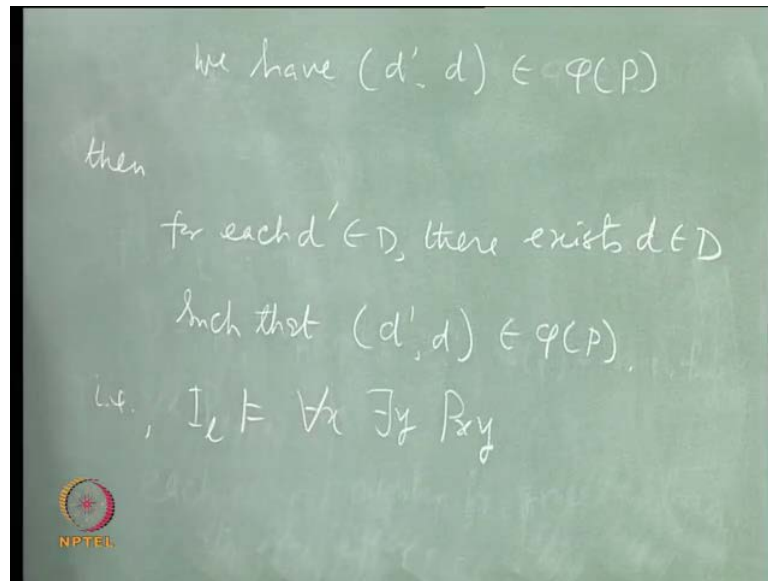 We have (d', d) ∈ φ(P)
then
for each d' ∈ D, there exists d ∈ D
such that (d', d) ∈ φ(P).
i.e., I_l ⊨ ∀x ∃y Pxy
NPTEL